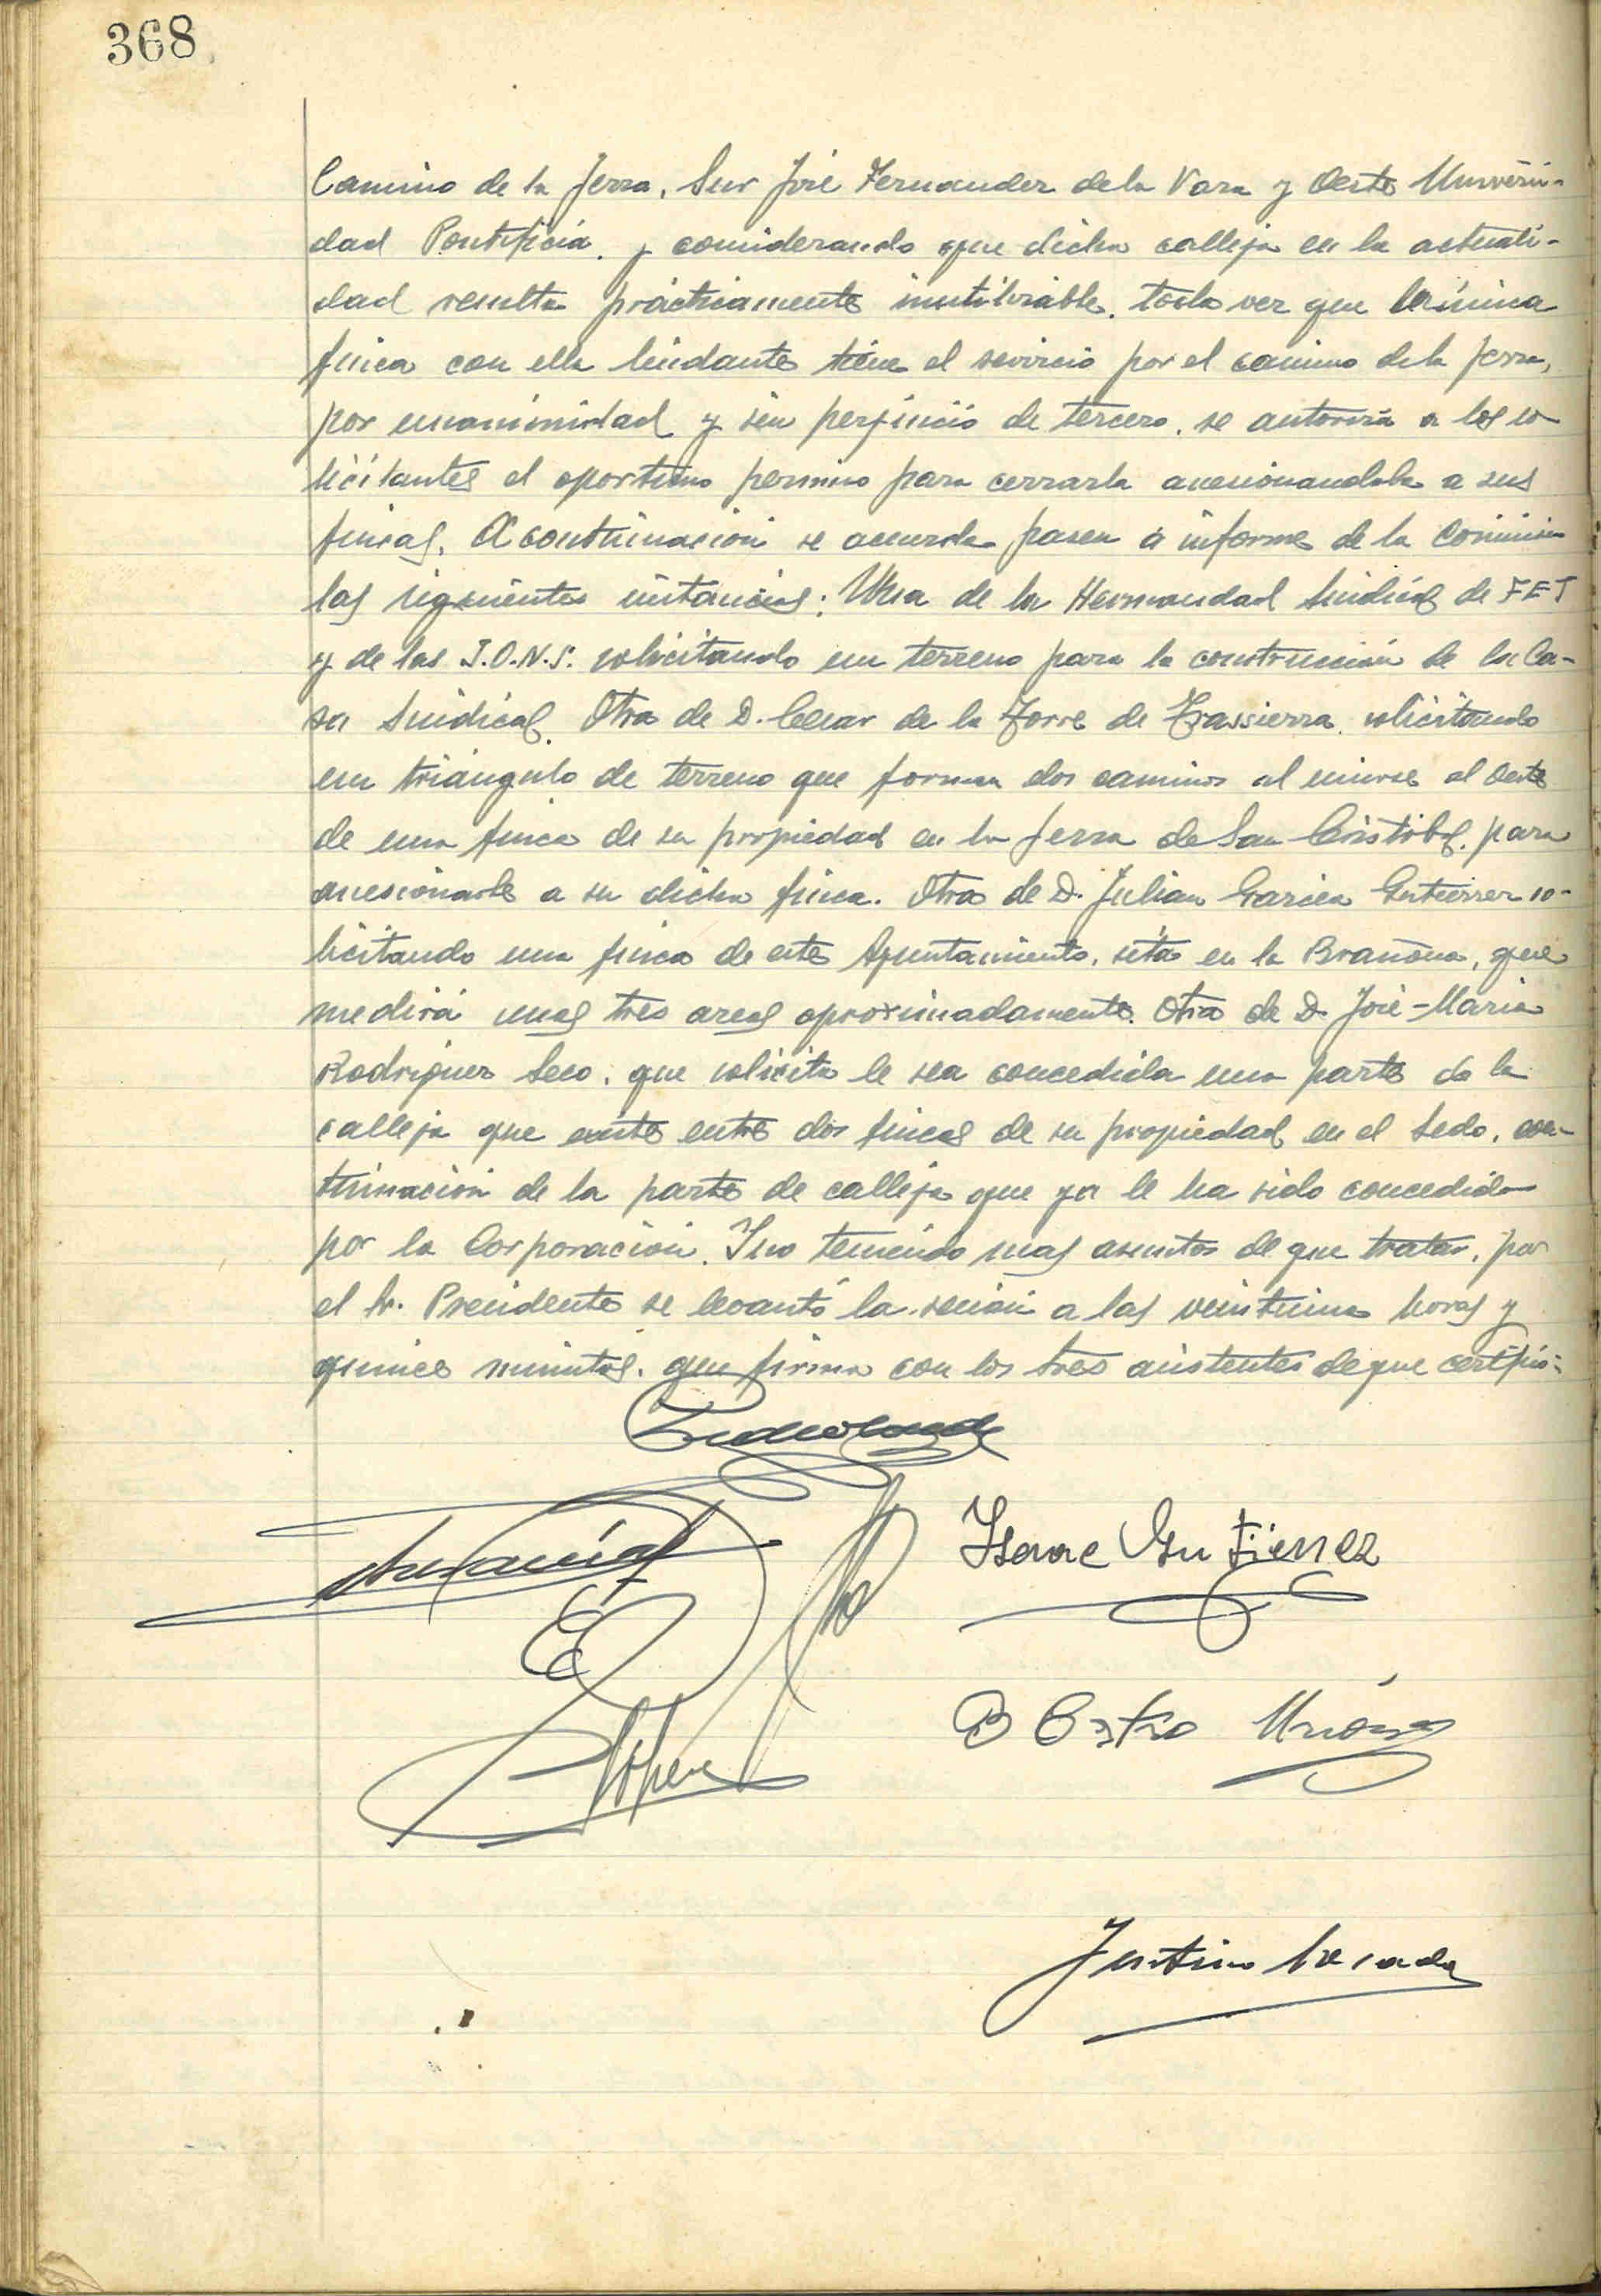 368
Camino de la Jerra, Sur José Fernandez de la Vara y Oeste Universi-
dad Pontificia, y considerando que dicha calleja en la actuali-
dad resulta prácticamente inutilizable, toda vez que la única
finca con ella lindante tiene el servicio por el camino de la Jerra,
por unanimidad y sin perjuicio de tercero, se autoriza a los so-
licitantes el oportuno permiso para cerrarla anexionandola a sus
fincas. A continuación se acuerda pasen a informe de la Comision
las siguientes instancias: Una de la Hermandad Sindical de FET
y de las J.O.N.S. solicitando un terreno para la construcción de la Ca-
sa Sindical. Otra de D. Cesar de la Torre de Trassierra, solicitando
un triángulo de terreno que forman dos caminos al unirse al Oeste
de una finca de su propiedad en la Jerra de San Cristobal, para
anexionarle a su dicha finca. Otra de D. Julian Garcia Gutierrez so-
licitando una finca de este Ayuntamiento, sita en la Brañona, que
medirá unas tres areas aproximadamente. Otra de D. José-Maria
Rodriguez Seco, que solicita le sea concedida una parte de la
calleja que existe entre dos fincas de su propiedad en el Sedo, con-
tinuación de la parte de calleja que ya le ha sido concedida
por la Corporación. Y no teniendo mas asuntos de que tratar, por
el Sr. Presidente se levantó la sesión a las veintiuna horas y
quince minutos, que firma con los tres asistentes de que certifico:
Isaac Gutierrez
López
B Castro
Justino